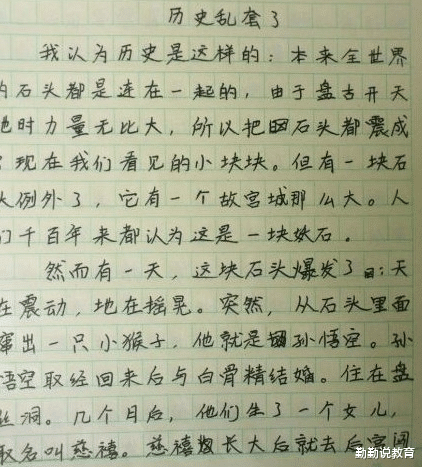 历史乱套了
我认为历史是这样的：本来全世界
的石头都是连在一起的，由于盘古开天
地时力量无比大，所以把石头都震成
了现在我们看见的小块块。但有一块石
头例外了，它有一个故宫城那么大。人
们千百年来都认为这是一块妖石。
然而有一天，这块石头爆发了：天
在震动，地在摇晃。突然，从石头里面
窜出一只小猴子，他就是孙悟空。孙
悟空取经回来后与白骨精结婚。住在盘
丝洞。几个月后，他们生了一个女儿，
取名叫慈禧。慈禧长大后就去后宫闯
勤勤说教育